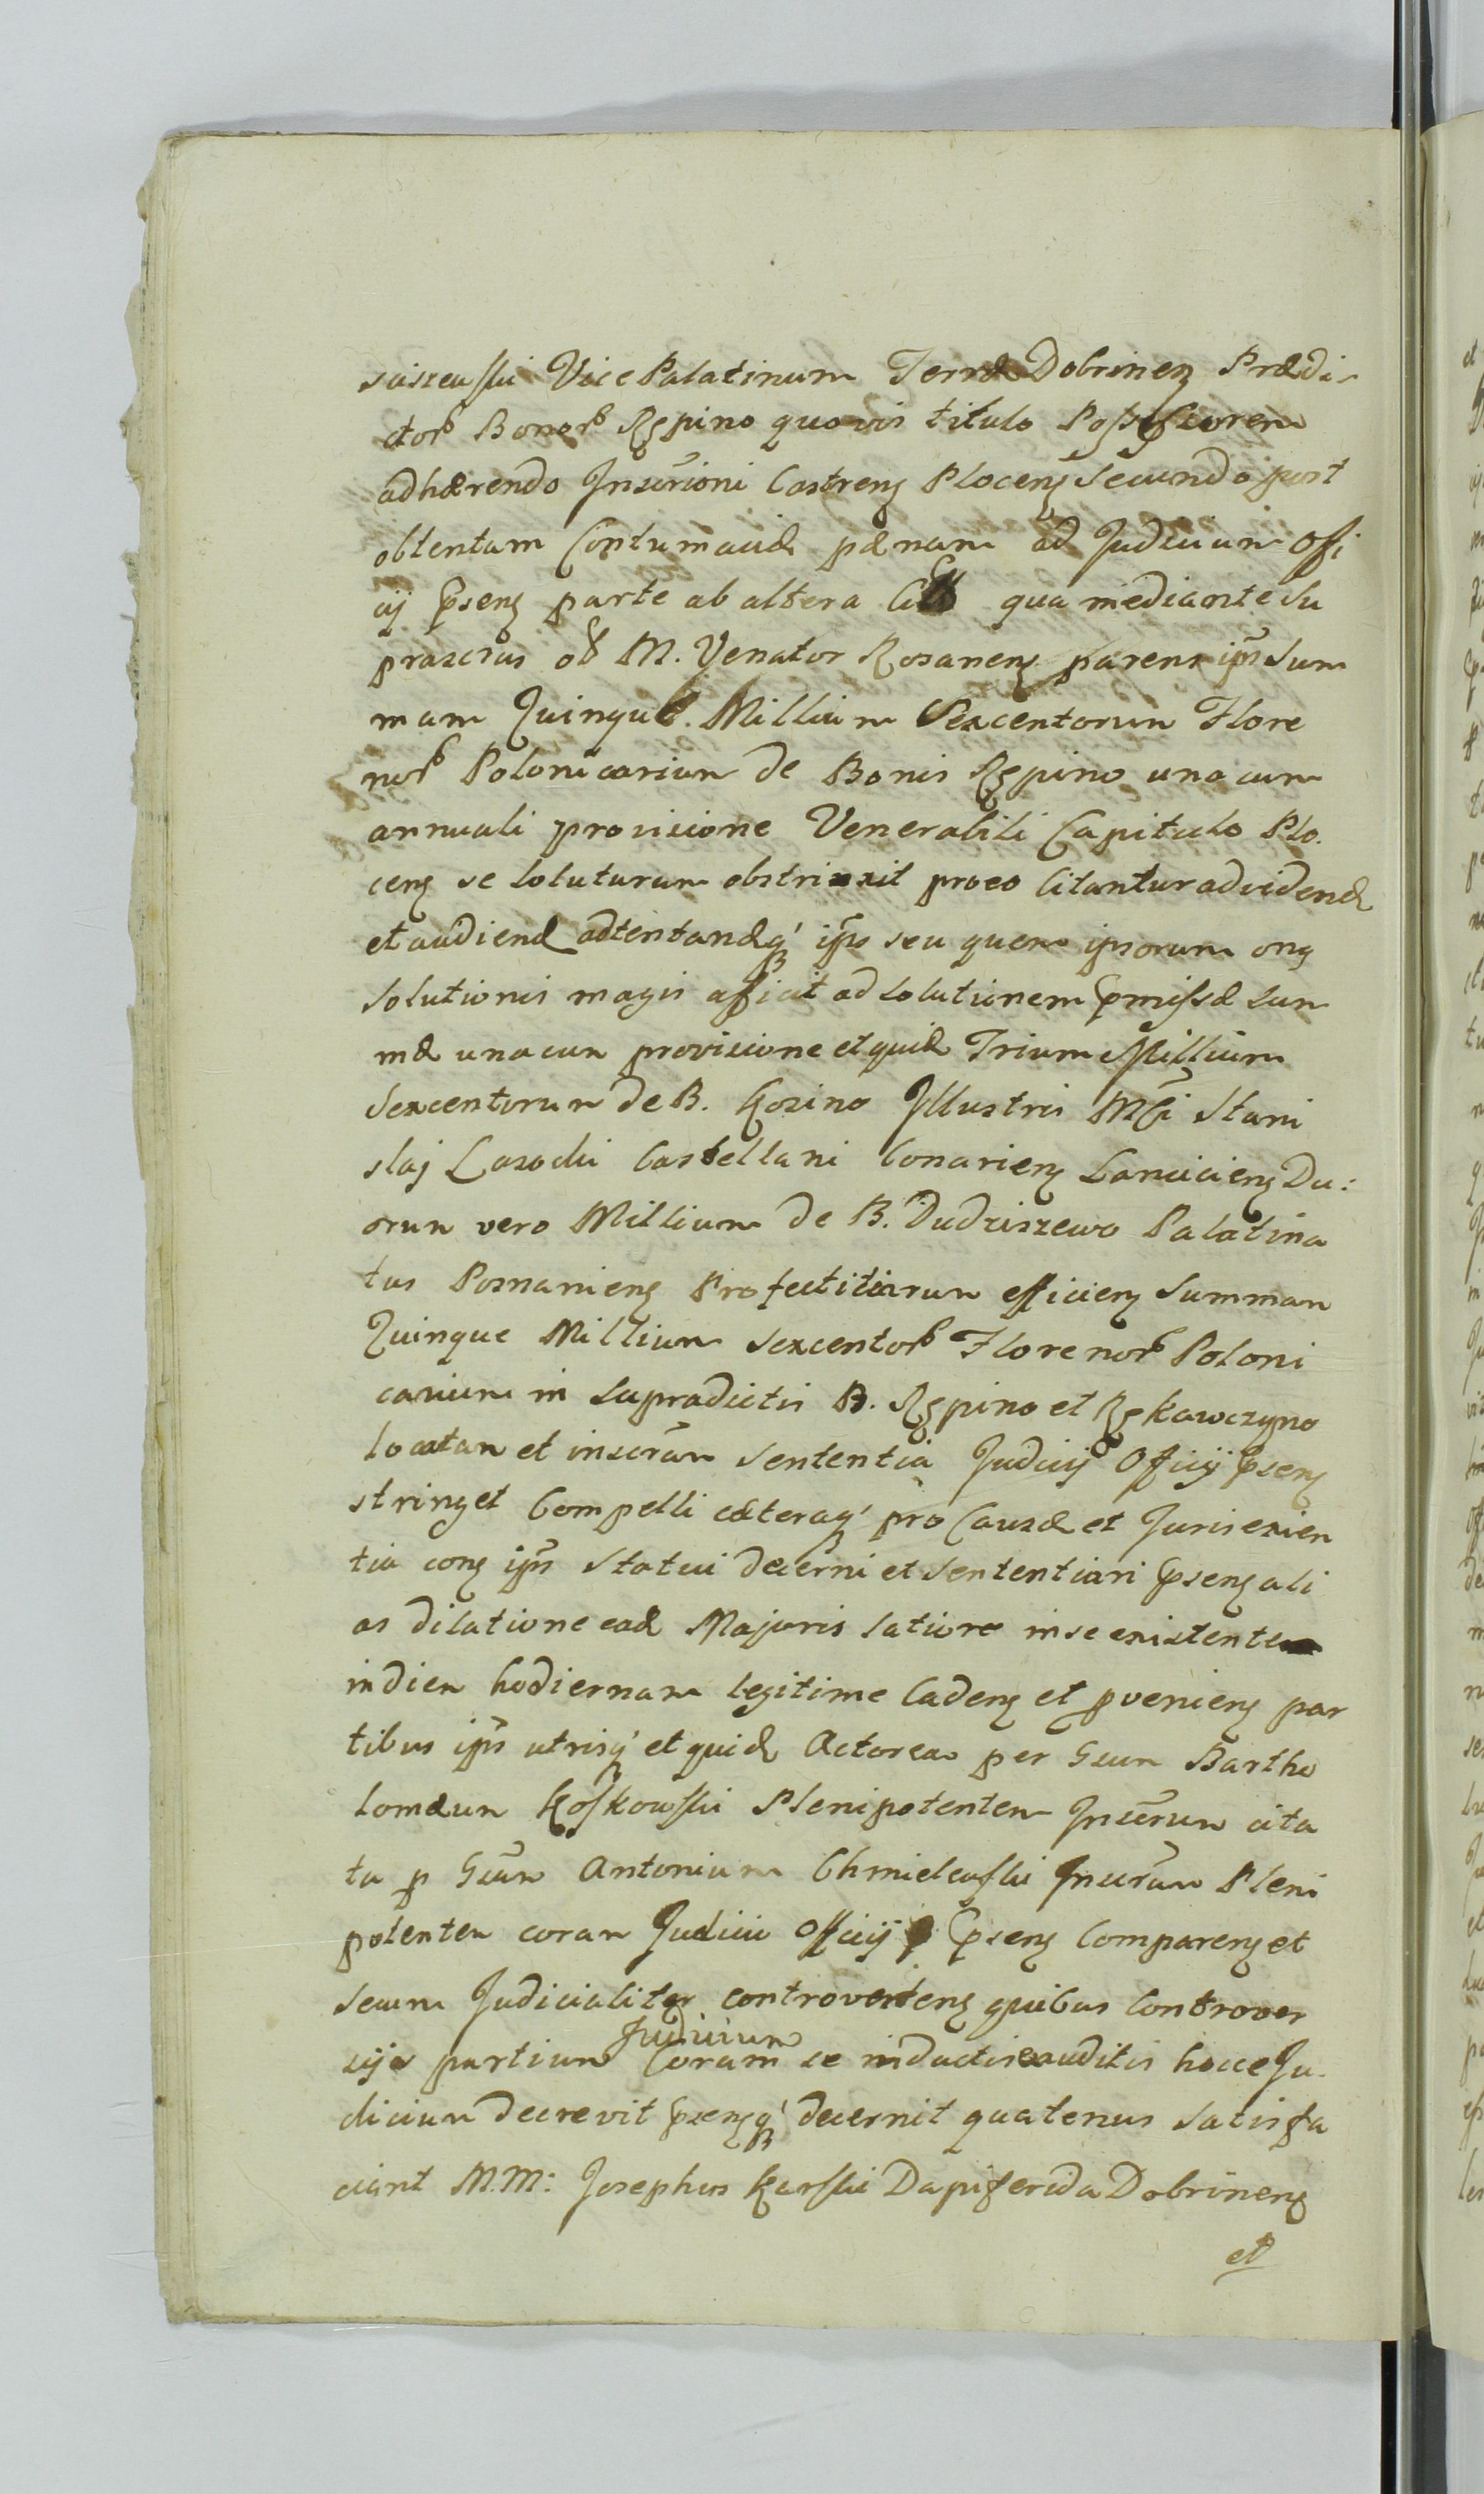 Vice Palatinum Terræ Dobrinen Prædi-
ctor Bonor Rępino quovis titulo Possessorem
adhærendo Inscrioni Castren Plocen Secundo post
obtentam Contumaciæ pænam ad Judicium Offi
cij Psen parte ab altera Citt qua mediante Su
prascrus olỉ M. Venator Rosanen parens ipsi Sum
mam Quinque Millium Sexcentorum Flore
nor Polonicarium de Bonis Rępino una cum
annuali provisione Venerabili Capitulo Plo.
cen se soluturam obstrinxit proeo Citantur ad vidend
et audiend adtentandq' ipso seu quem ipsorum ong
solutionis magis aficit ad solutionem Pmissæ Sum
mæ unacum provisione et quid Trium Millium
Sexcentorum de B. Kozino Illustris Mci Stani
slaj Lasocki Castellani Conarien Lancicien Du:
orum vero Millium de B. Dudziszewo Palatina
tus Posnanien Profectitiarum efficien Summam
Quinque Millium Sexcentor Florenor Poloni
carium in Supradictis B. Rępino et Rękawczyno
locatam et inscram Sententia Judicij Officij Psen
stringet Compelli cæteraq' pro Causæ et Juris exien
tia cong ipsi Statui decerni et Sententiari Psen ali
as dilatione ead Majoris latiore in se existente
in diem hodiernam legitime Caden et pvenien par
tibus ipsis utrisq' et quid Actorea per Gsum Bartho
lomæum Koskowski Plenipotentem Inscrum cita
ta p Gsum Antonium Chmielewski Inscrum Pleni
potentem coram Judicio Officij Psen Comparen et
secum Judicialiter controverten quibus Controver
Judicium
sijs partium Coram se inductis exauditis hocce Ju-
dicium decrevit Psenq' decernit quatenus Satisfa
ciant M.M: Josephus Karski Dapiferida Dobrinen
et